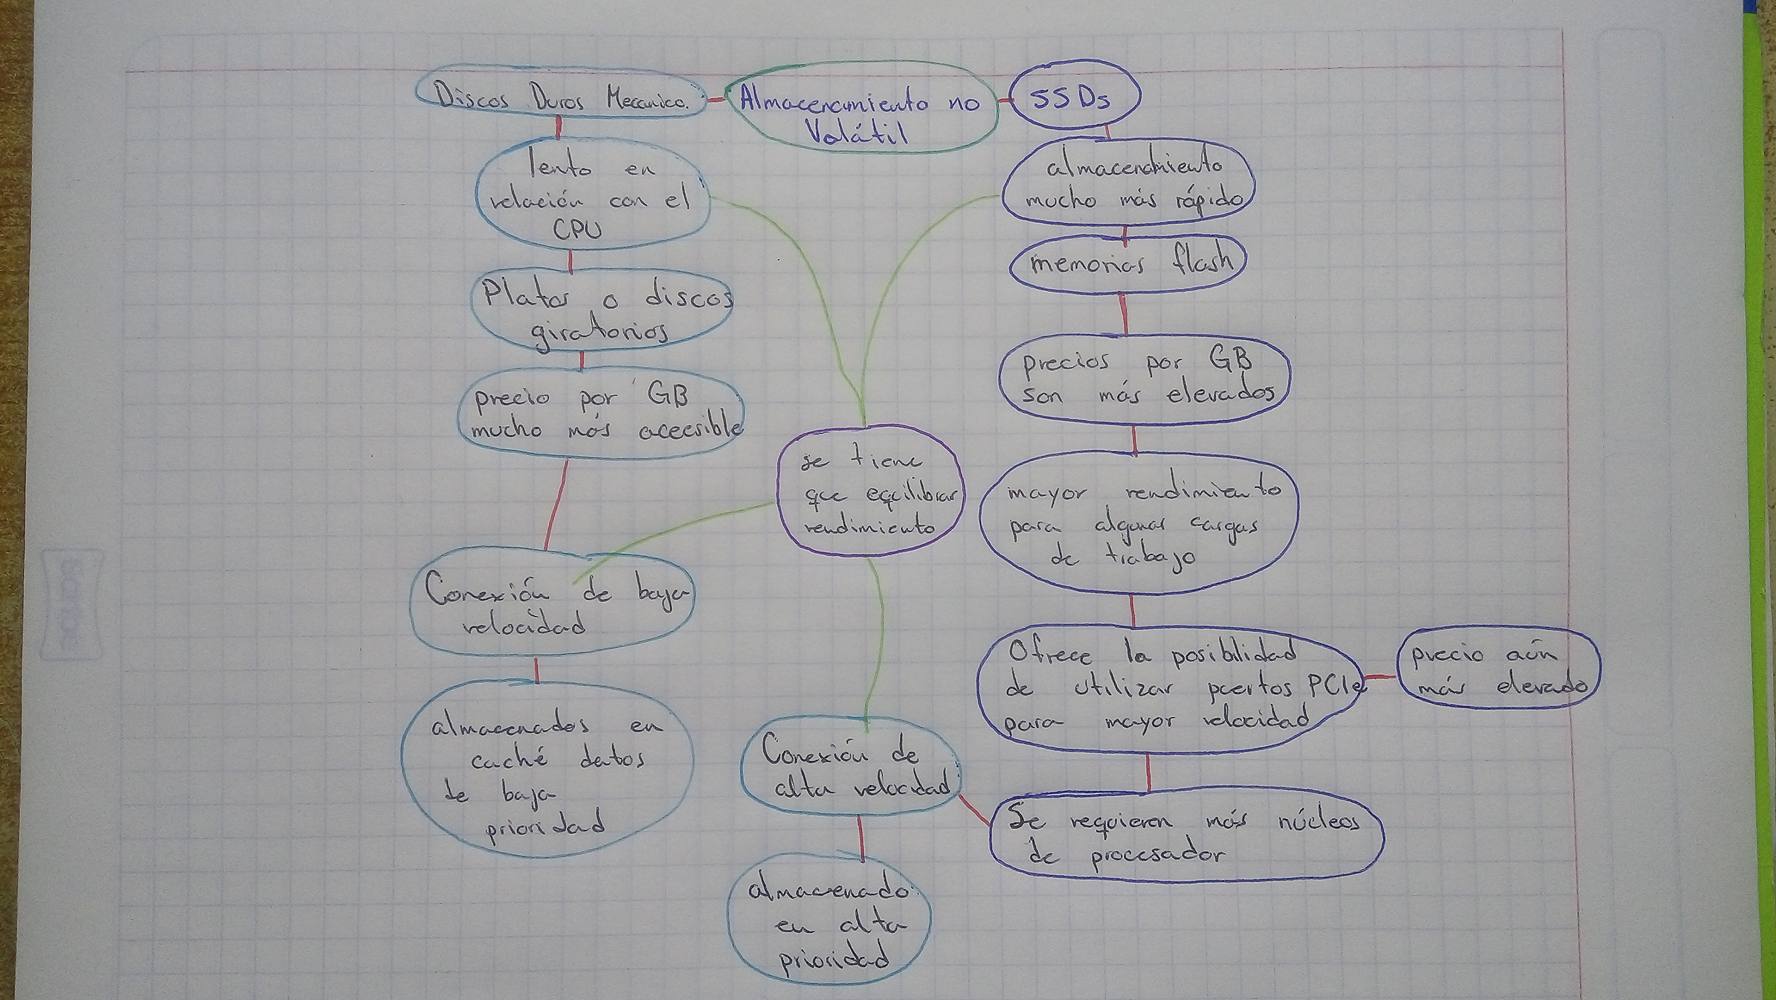 Discos Duros Mecanico.
Almacenamiento no
Volátil
SSDs
lento en
relación con el
CPU
Platos o discos
giratorios
precio por GB
mucho más accesible
Conexión de baja
velocidad
almacenados en
caché datos
de baja
prioridad
se tiene
que equilibrar
rendimiento
Conexión de
alta velocidad
almacenado
en alta
prioridad
almacenamiento
mucho más rápido
memorias flash
precios por GB
son más elevados
mayor rendimiento
para algunas cargas
de trabajo
Ofrece la posibilidad
de utilizar puertos PCIe
para mayor velocidad
precio aún
más elevado
Se requieren más núcleos
de procesador